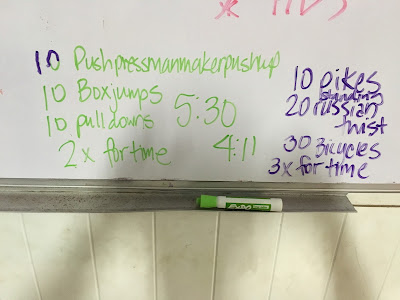 10 Pushpressmanmakerpushup
10 Boxjumps
10 pulldowns
2x for time
5:30
4:11
10 pikes
standing
20 russian
twist
30 Bicycles
3x for time
EXPO